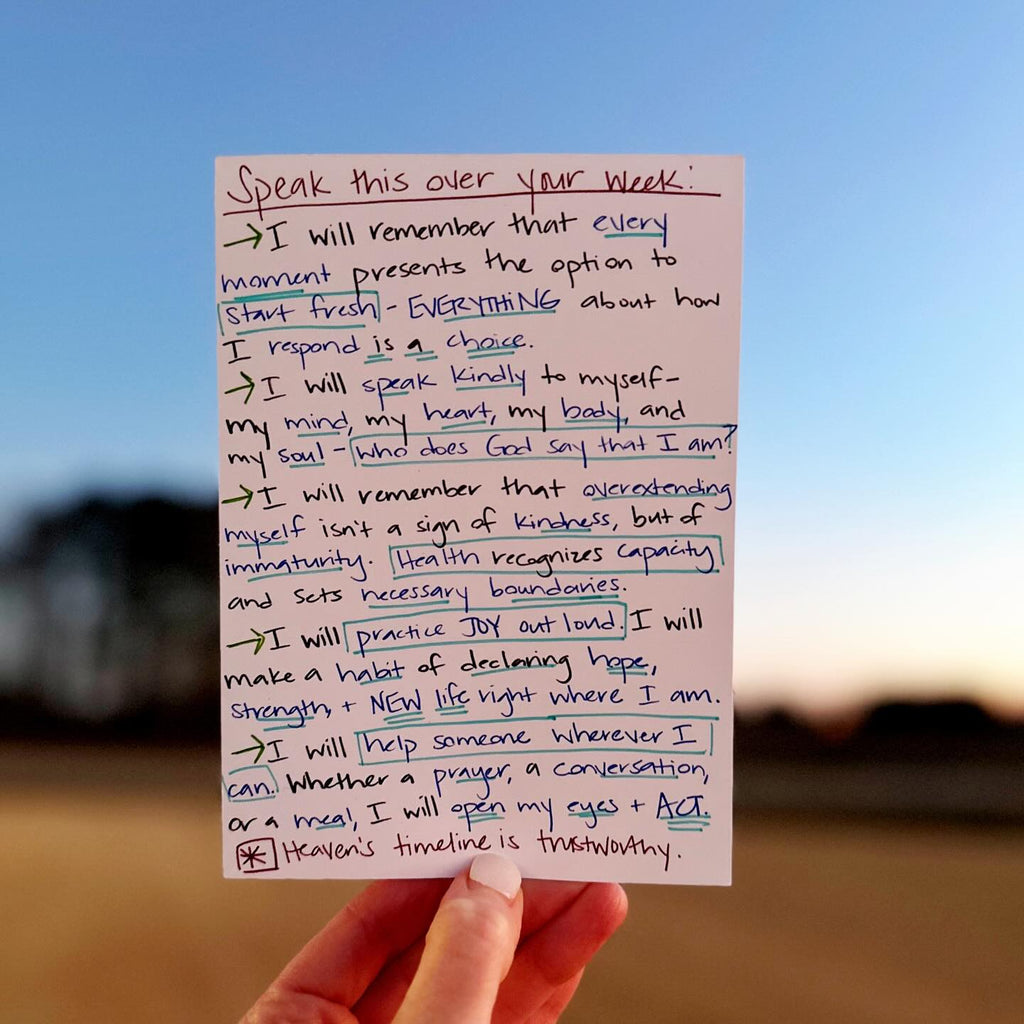 Speak this over your week:
→ I will remember that every
moment presents the option to
start fresh - EVERYTHiNG about how
I respond is a choice.
→ I will speak kindly to myself-
my mind, my heart, my body, and
my soul - who does God say that I am?
→ I will remember that overextending
myself isn't a sign of kindness, but of
immaturity. Health recognizes capacity
and sets necessary boundaries.
→ I will practice JOY out loud. I will
make a habit of declaring hope,
strength, + NEW life right where I am.
→ I will help someone wherever I
can. Whether a prayer, a conversation,
or a meal, I will open my eyes + ACT.
* Heaven's timeline is trustworthy.